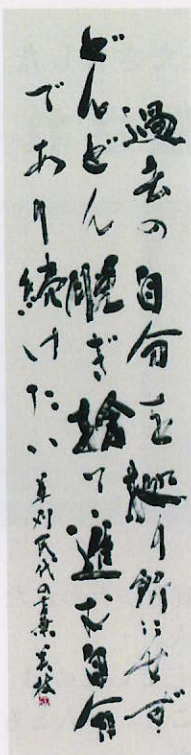 過去の自分を拠り所にせず
どんどん脱ぎ捨て進む自分
であり続けたい 草刈民代の言葉 美枝